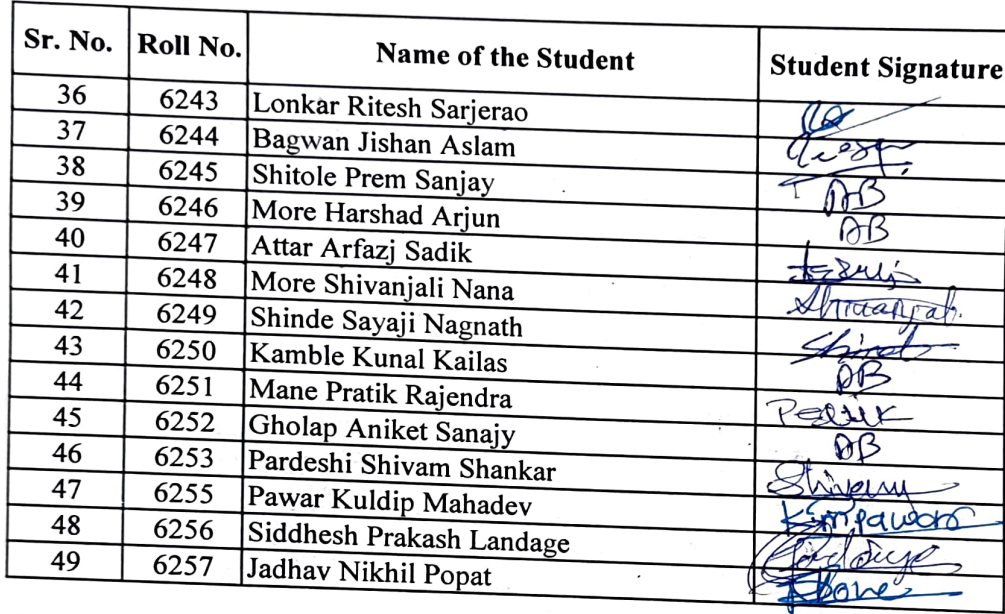 Sr. No. Roll No. Name of the Student Student Signature
36 6243 Lonkar Ritesh Sarjerao
37 6244 Bagwan Jishan Aslam
38 6245 Shitole Prem Sanjay AB
39 6246 More Harshad Arjun AB
40 6247 Attar Arfazj Sadik
41 6248 More Shivanjali Nana
42 6249 Shinde Sayaji Nagnath Shinde
43 6250 Kamble Kunal Kailas AB
44 6251 Mane Pratik Rajendra
45 6252 Gholap Aniket Sanajy AB
46 6253 Pardeshi Shivam Shankar Shivam
47 6255 Pawar Kuldip Mahadev
48 6256 Siddhesh Prakash Landage
49 6257 Jadhav Nikhil Popat